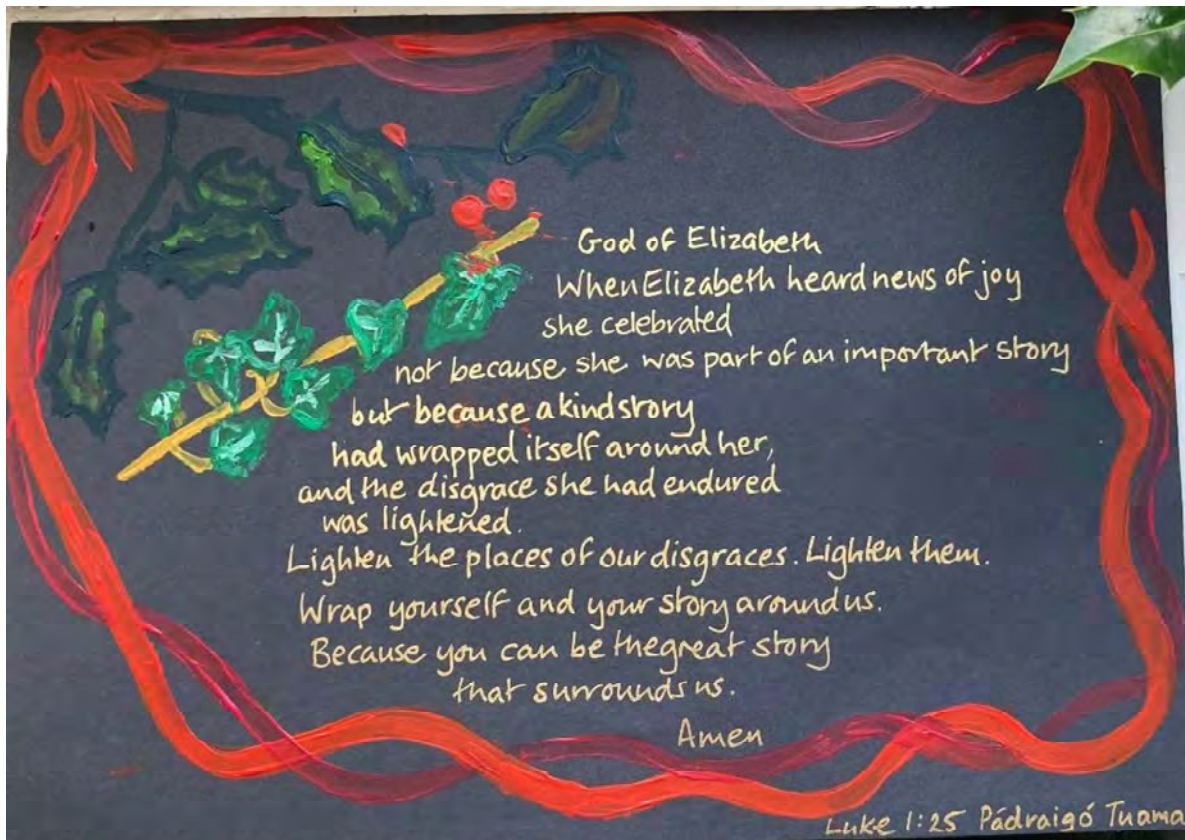 God of Elizabeth
When Elizabeth heard news of joy
she celebrated
not because she was part of an important story
but because a kind story
had wrapped itself around her,
and the disgrace she had endured
was lightened.
Lighten the places of our disgraces. Lighten them.
Wrap yourself and your story around us.
Because you can be the great story
that surrounds us.
Amen
Luke 1:25 Pádraig ó Tuama